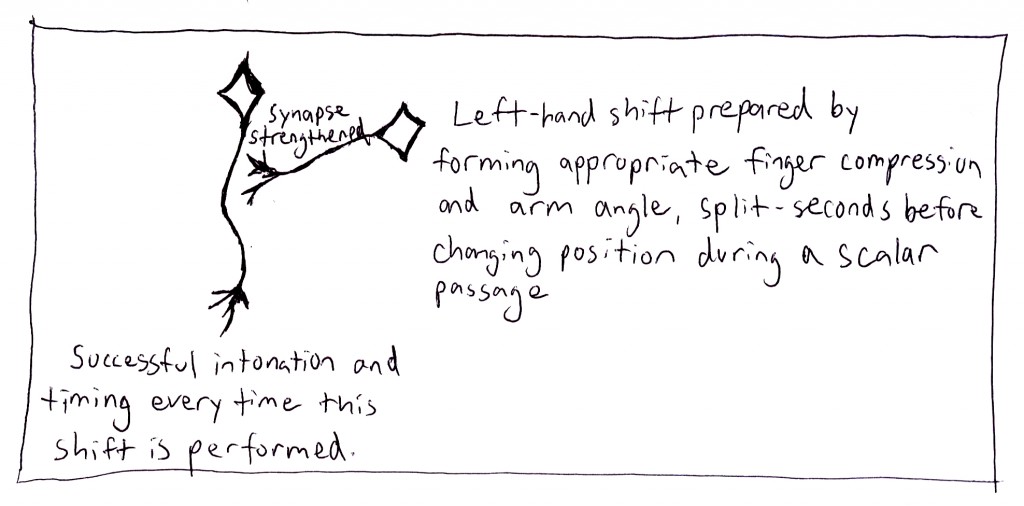 synapse
strengthened
Left-hand shift prepared by
forming appropriate finger compression
and arm angle, split-seconds before
changing position during a scalar
passage
Successful intonation and
timing every time this
shift is performed.